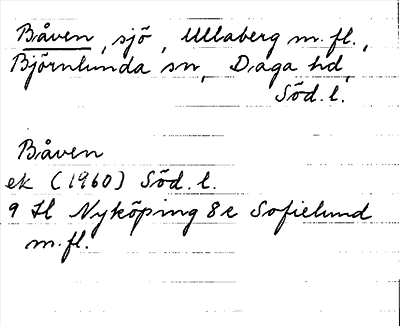 Båven, sjö, Ullaberg m.fl.,
Björnlunda sn, Daga hd,
Söd. l.
Båven
ek (1960) Söd. l.
9 H Nyköping 8e Sofielund
m.fl.